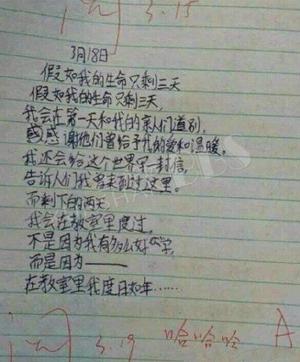 3.15
3月18日
假如我的生命只剩三天
假如我的生命只剩三天,
我会在第一天和我的亲人们道别,
感感谢他们曾给予我的爱和温暖。
我还会给这个世界写一封信,
告诉人们我曾来到过这里。
而剩下的两天,
我会在教室里度过,
不是因为我有多么好学,
而是因为——
在教室里我度日如年……
3.19
哈哈哈
A